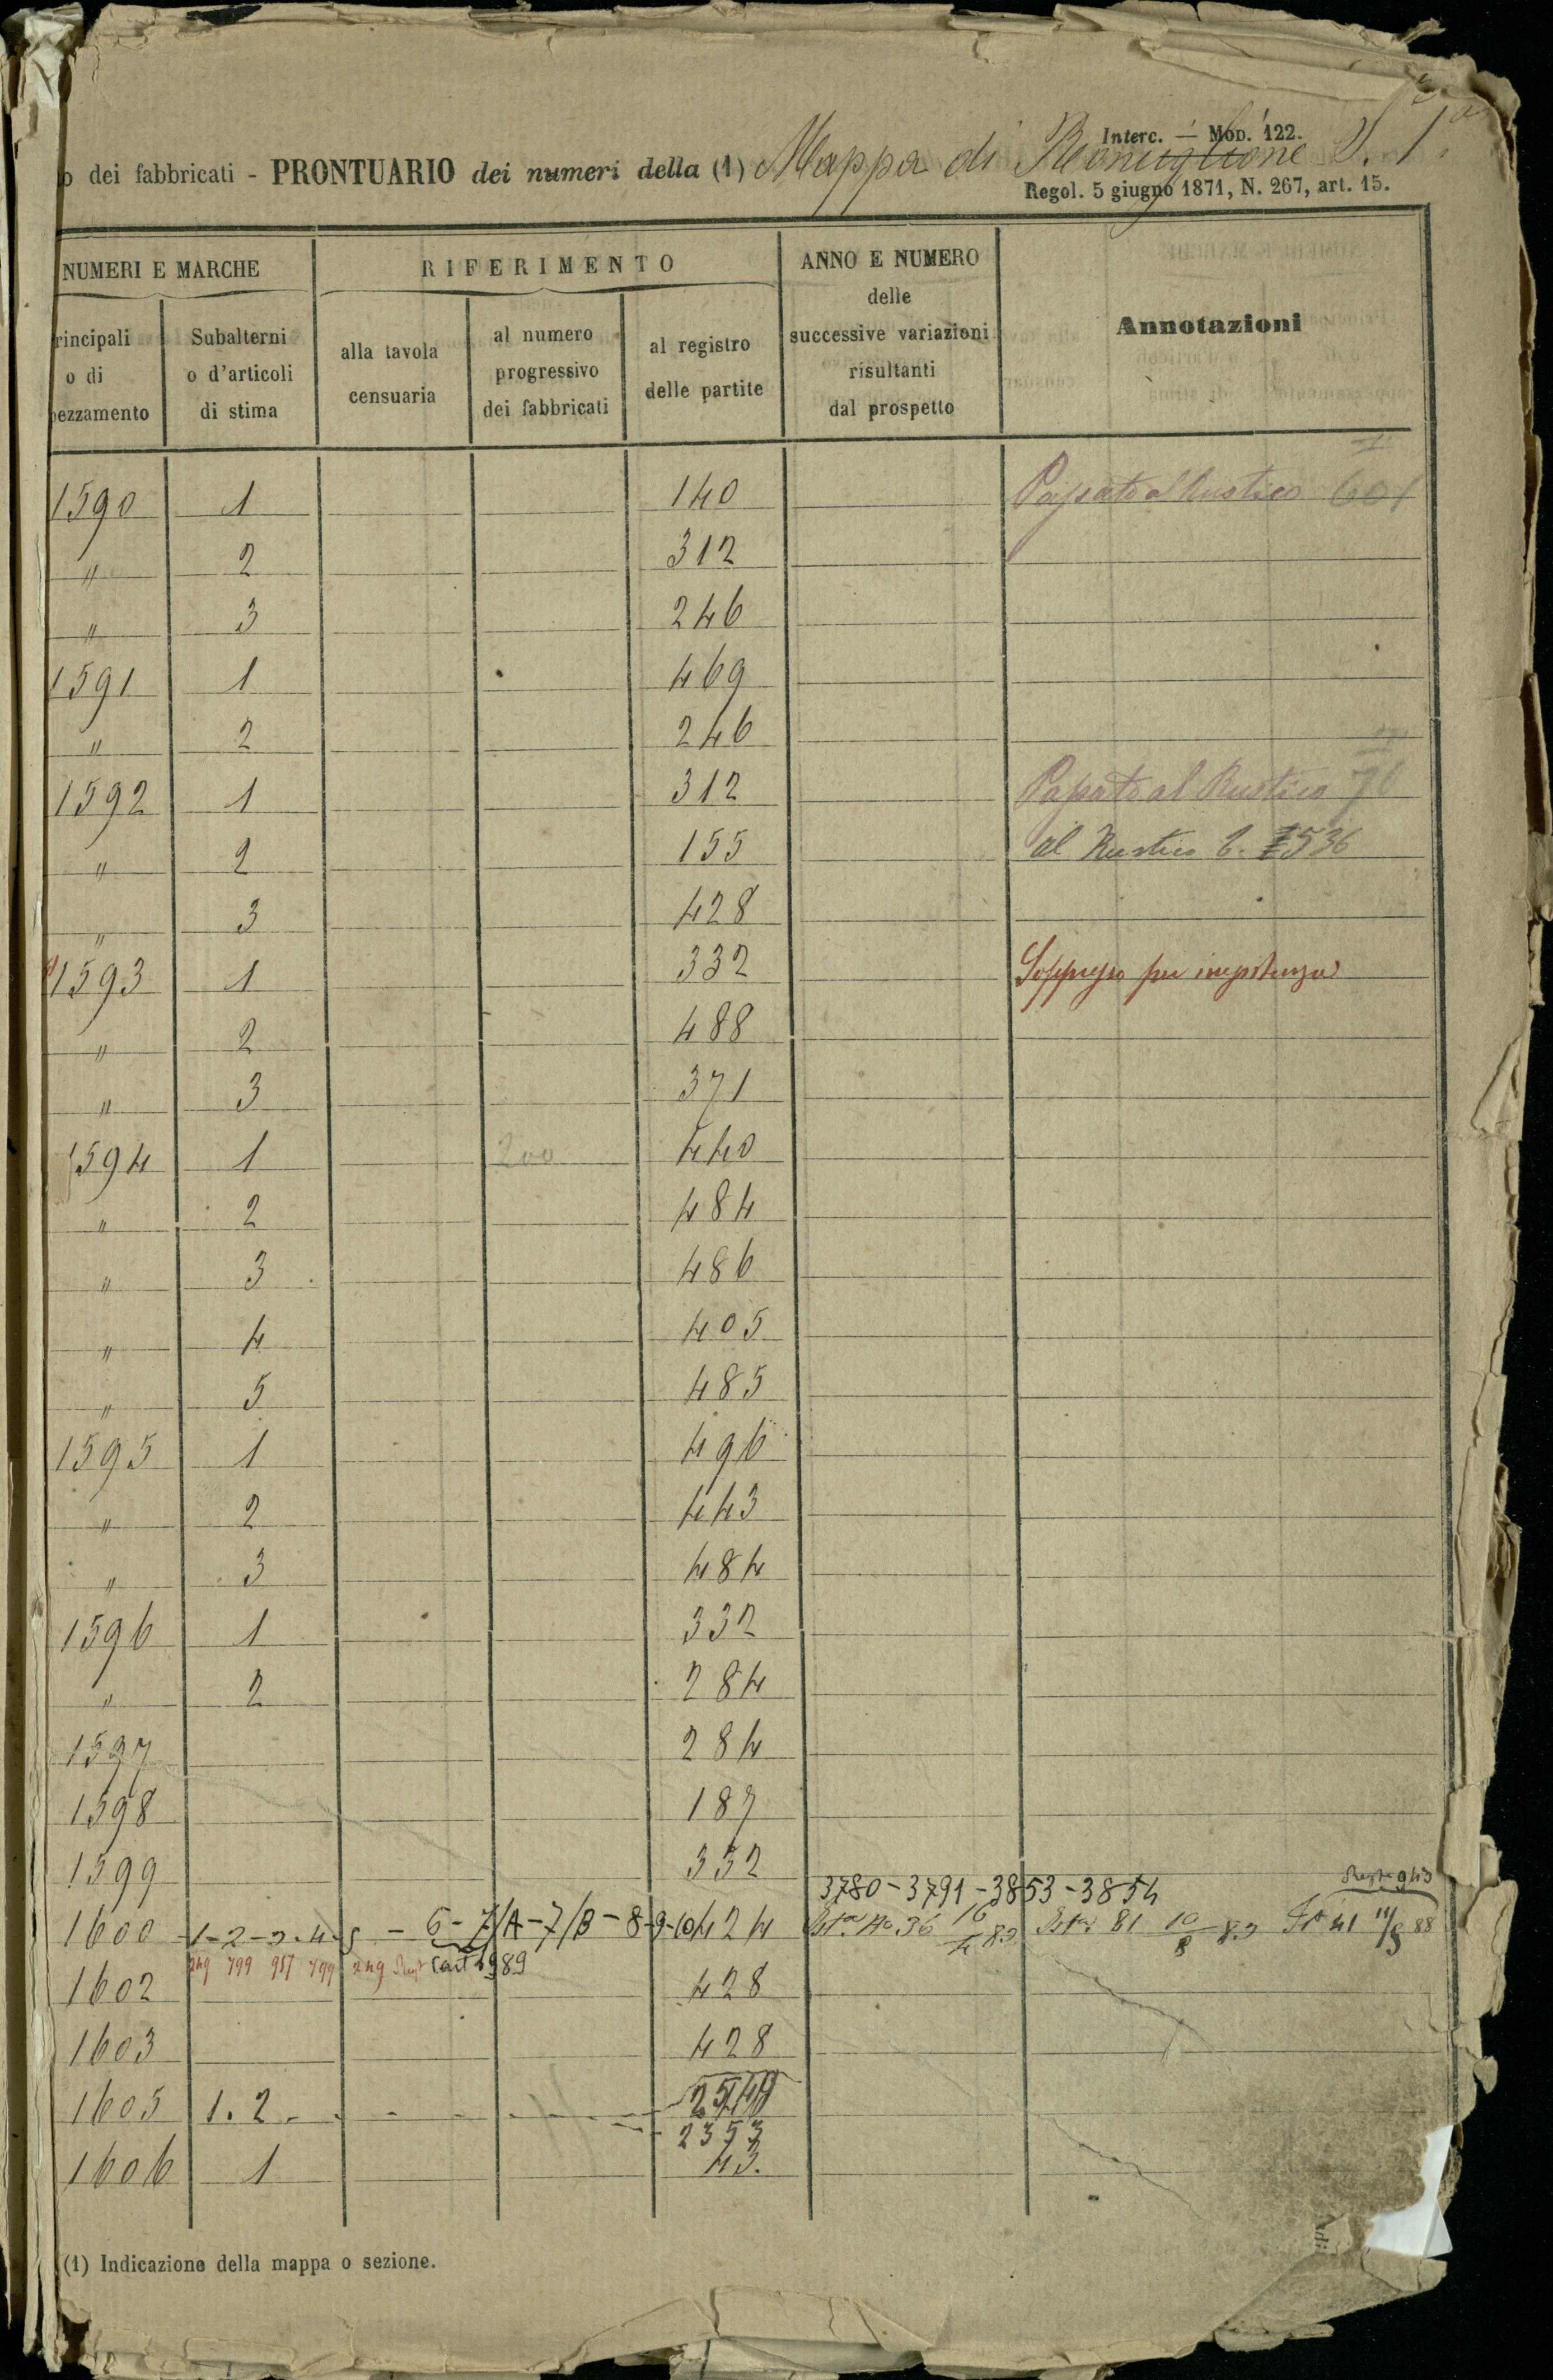 Interc. — Mod. 122.
o dei fabbricati - PRONTUARIO dei numeri della (1) Mappa di Ronciglione S. 1a
Regol. 5 giugno 1871, N. 267, art. 15.
NUMERI E MARCHE RIFERIMENTO ANNO E NUMERO
delle
successive variazioni
risultanti
dal prospetto
Annotazioni
rincipali
o di
pezzamento
Subalterni
o d'articoli
di stima
alla tavola
censuaria
al numero
progressivo
dei fabbricati
al registro
delle partite
1590 1 140 Passato al Rustico 601
" 2 312
" 3 246
1591 1 469
" 2 246
1592 1 312 Passato al Rustico
" 2 155 al Rustico 536
" 3 428
1593 1 332 Soppresso per inesistenza
" 2 488
" 3 371
1594 1 200 440
" 2 484
" 3 486
" 4 405
" 5 485
1595 1 496
" 2 443
" 3 484
1596 1 332
" 2 284
1597 284
1598 187
1599 332
3780-3791-3853-3854
1600 1-2-3-4-5-6-7/A-7/B-8-9-10 424
249 799 957 799 249 Cart 1989
1602 428
1603 428
1605 1.2
2353
1606 1 43.
(1) Indicazione della mappa o sezione.